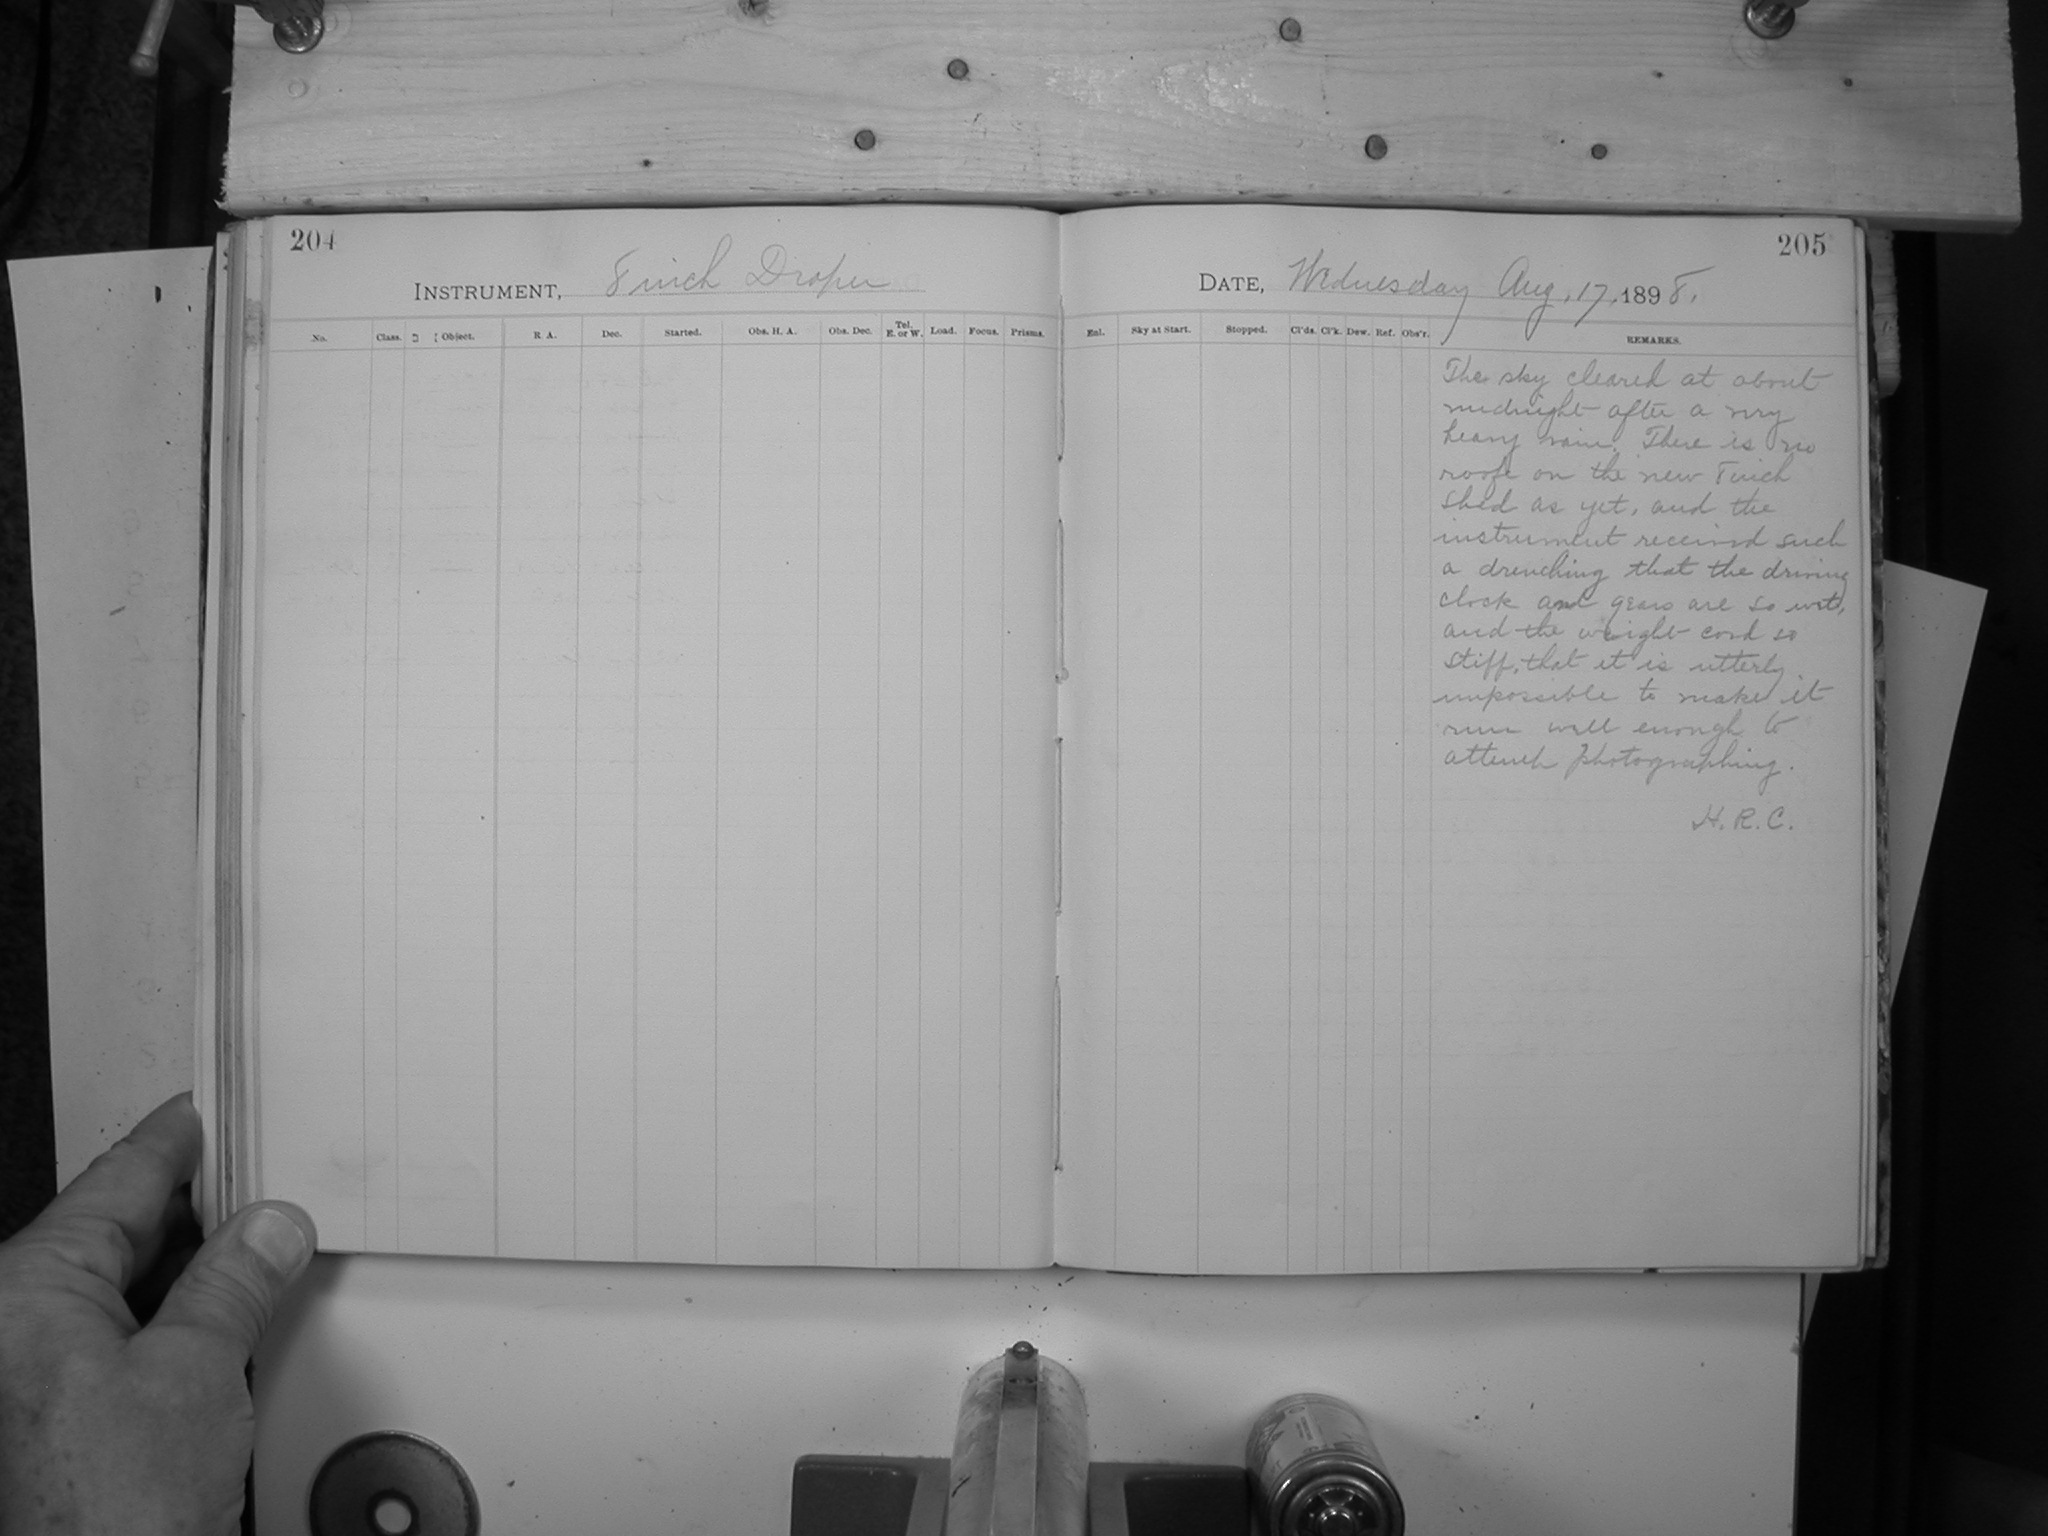 204
INSTRUMENT, 8 inch Draper
No. Class. Object. R A. Dec. Started. Obs. H. A. Obs. Dec. Tel. E. or W. Load. Focus. Prisms.
205
DATE, Wednesday Aug. 17, 1898.
Enl. Sky at Start. Stopped. Cl'ds. Cl'k. Dew. Ref. Obs'r. REMARKS.
The sky cleared at about
midnight after a very
heavy rain. There is no
roof on the new 8 inch
shed as yet, and the
instrument received such
a drenching that the driving
clock and gears are so wet,
and the weight cord so
stiff, that it is utterly
impossible to make it
run well enough to
photographing.
H. R. C.